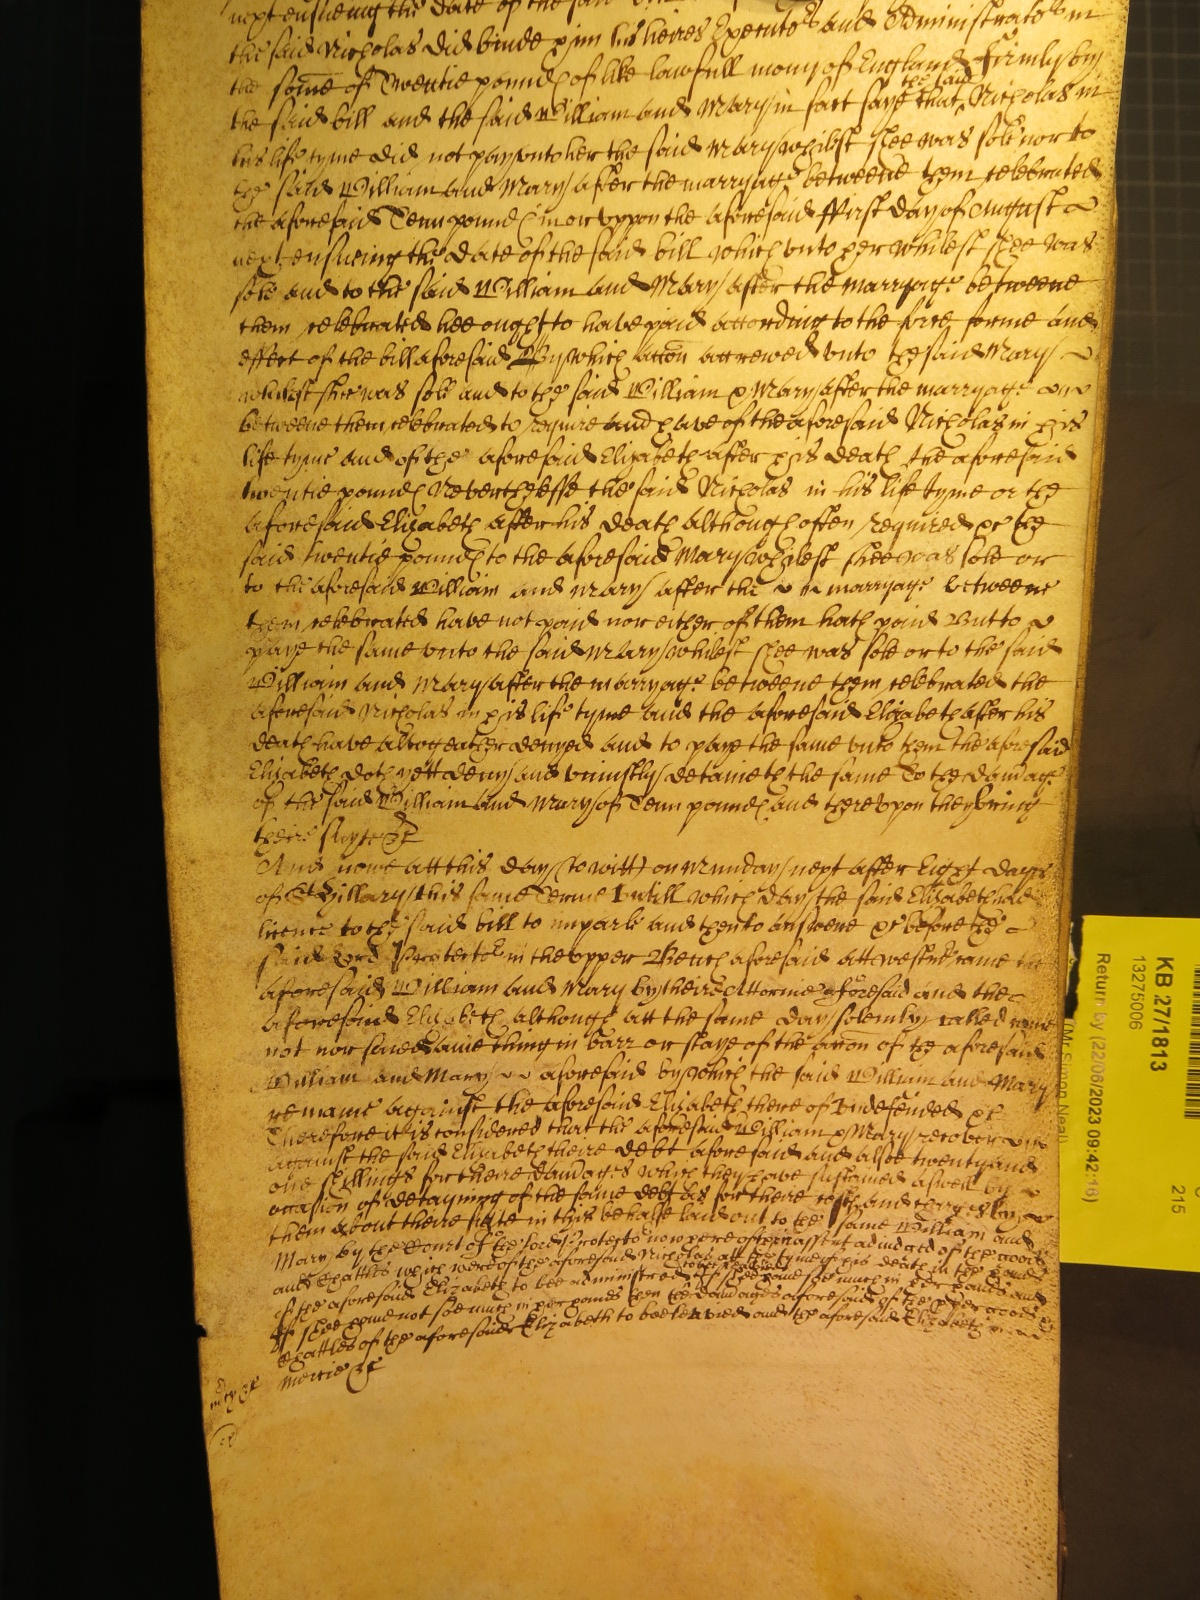 next ensueing the date of the said
the said Nicholas did binde him his heires Executors and Administrators in
the some of Twentie pounds of like lawfull mony of England Firmly by
the said bill and the said William and Mary in fact saye that the said Nicholas in
his life tyme did not pay unto her the said Mary whilest shee was sole nor to
the said William and Mary after the marryage betweene them celebrated
the aforesaid Tenn pounds in or uppon the aforesaid ffirst day of August
next ensueing the date of the said bill which unto her whilest shee was
sole and to the said William and Mary after the marryage betweene
them celebrated hee ought to have paid according to the force forme and
effect of the bill aforesaid By which accon accrewed unto the said Mary
whilest shee was sole and to the said William & Mary after the marryage
betweene them celebrated to require and have of the aforesaid Nicholas in his
life tyme and of the aforesaid Elizabeth after his death the aforesaid
twentie pounds Neverthelesse the said Nicholas in his life tyme or the
aforesaid Elizabeth after his death although often required &c the
said twentie pounds to the aforesaid Mary whilest shee was sole or
to the aforesaid William and Mary after the marryage betweene
them celebrated have not paid nor either of them hath paid But to
paye the same unto the said Mary whilest shee was sole or to the said
William and Mary after the marryage betweene them celebrated the
aforesaid Nicholas in his life tyme and the aforesaid Elizabeth after his
death have altogeather denyed and to paye the same unto them the aforesaid
Elizabeth doth yett deny and uniustly detaineth the same To the damage
of the said William and Mary of Tenn pounds and thereupon they bring
theire suyte &c
And nowe att this day (to witt) on Munday next after Eight dayes
of St Hillary this same Terme Untill which day the said Elizabeth had
licence to the said bill to imparle and then to answere &c before the
said Lord Protector in the upper Bench aforesaid att Westmr came the
aforesaid William and Mary by theire Attornie aforesaid and the
aforesaid Elizabeth although att the same day solemly called came
not nor saied anie thing in barr or staye of the accon of the aforesaid
William and Mary aforesaid by which the said William and Mary
remaine against the aforesaid Elizabeth thereof Undefended &c
Therefore it is considered that the aforesaid William & Mary recover
against the said Elizabeth theire debt aforesaid and alsoe twenty and
one shillings for theire damages which they have susteined aswell by
occasion of detayning of the same debt as for there costs and charges by
them about there suite in this behalfe laid out to the same William and
Mary by the Court of the Lord Protector now here of their assent adiudged of the goods
and Chattles which were of the aforesaid Nicholas att the tyme of his death in the hands
of the aforesaid Elizabeth to bee administred if shee have soe much in her hands and
If shee have not soe much in her hands then the damages aforesaid of the proper goods
Chattles of the aforesaid Elizabeth to bee levied and the aforesaid Elizabeth in
Mercie &c
KB 27/1813
13275006
Return by (22/06/2023 09:42:16)
(Mr Simon Neal)
215